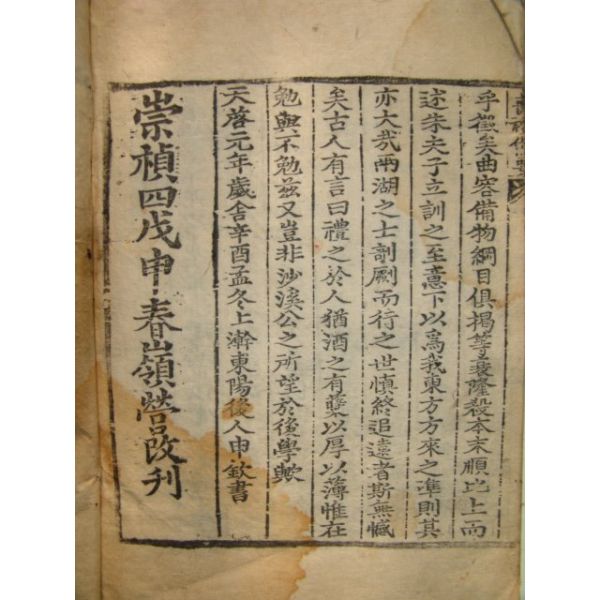 喪禮備要
乎觀矣曲容備物綱目俱揭等衰隆殺本末順比上而
述朱夫子立訓之至意下以爲我東方方來之準則其
亦大哉兩湖之士剞劂而行之世愼終追遠者斯無憾
矣古人有言曰禮之於人猶酒之有蘖以厚以薄惟在
勉與不勉玆又豈非沙溪公之所望於後學歟
天啓元年歲舍辛酉孟冬上澣東陽後人申欽書
崇禎四戊申春嶺營改刊